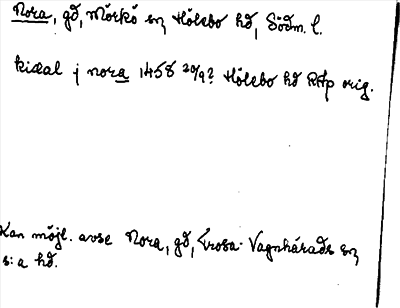 Nora, gd, Mörkö sn, Hölebo hd, Södm. l.
kixal j nora 1458 20/9? Hölebo hd RAp orig.
Kan möjl. avse Nora, gd, Trosa-Vagnhärads sn
s:a hd.